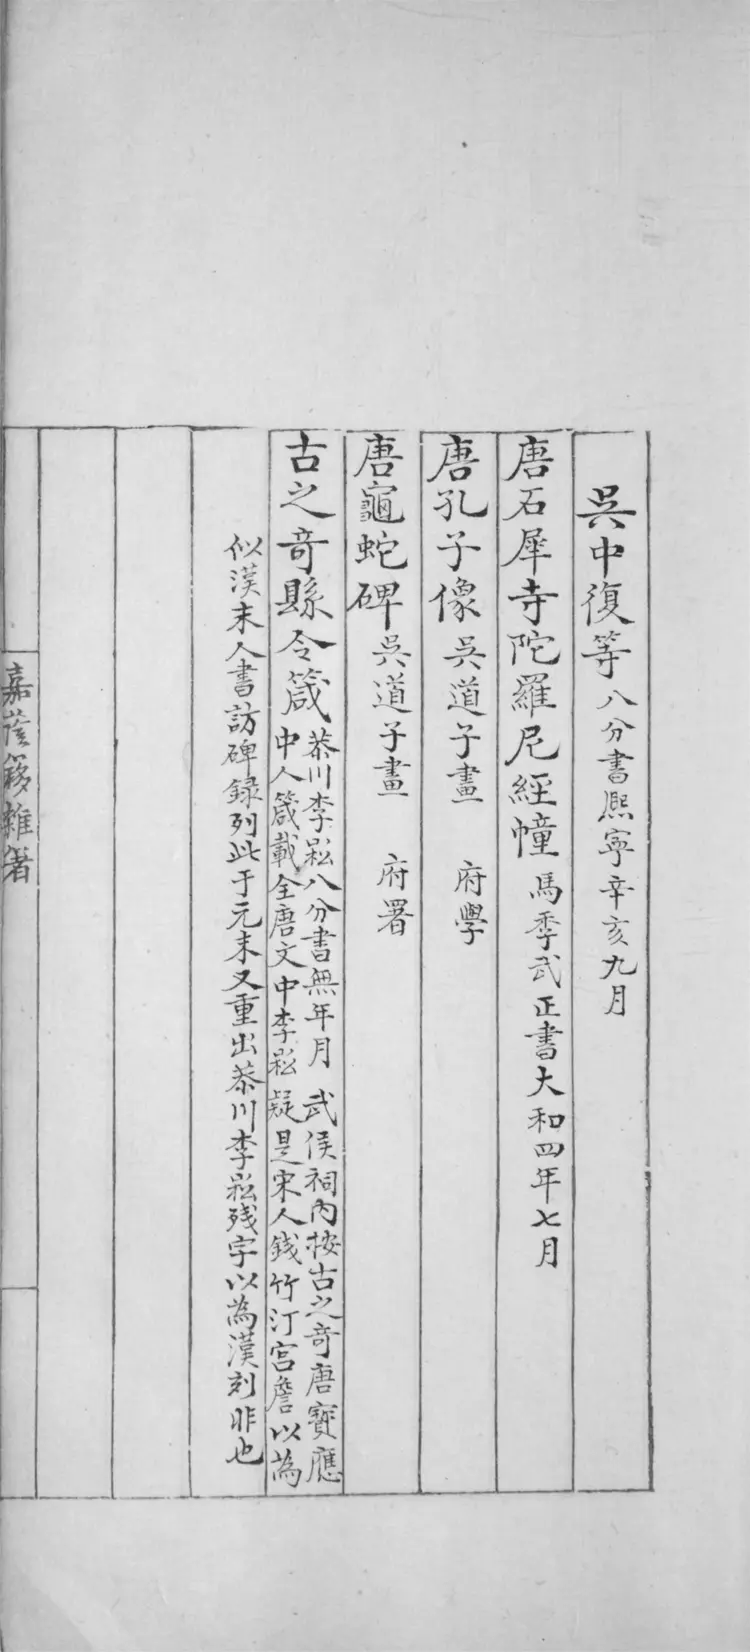 吳中復等八分書熈寧辛亥九月
唐石犀寺陀羅尼經幢馬季武正書大和四年七月
唐孔子像吳道子畫 府學
唐龜蛇碑吳道子畫 府署
古之奇縣令箴
菾川李㟲八分書無年月 武侯祠內按古之奇唐寶應
中人箴載全唐文中李㟲疑是宋人錢竹汀宮詹以為
似漢末人書訪碑録列此于元末又重出菾川李㟲残字以為漢刻非也
嘉蔭簃雜著